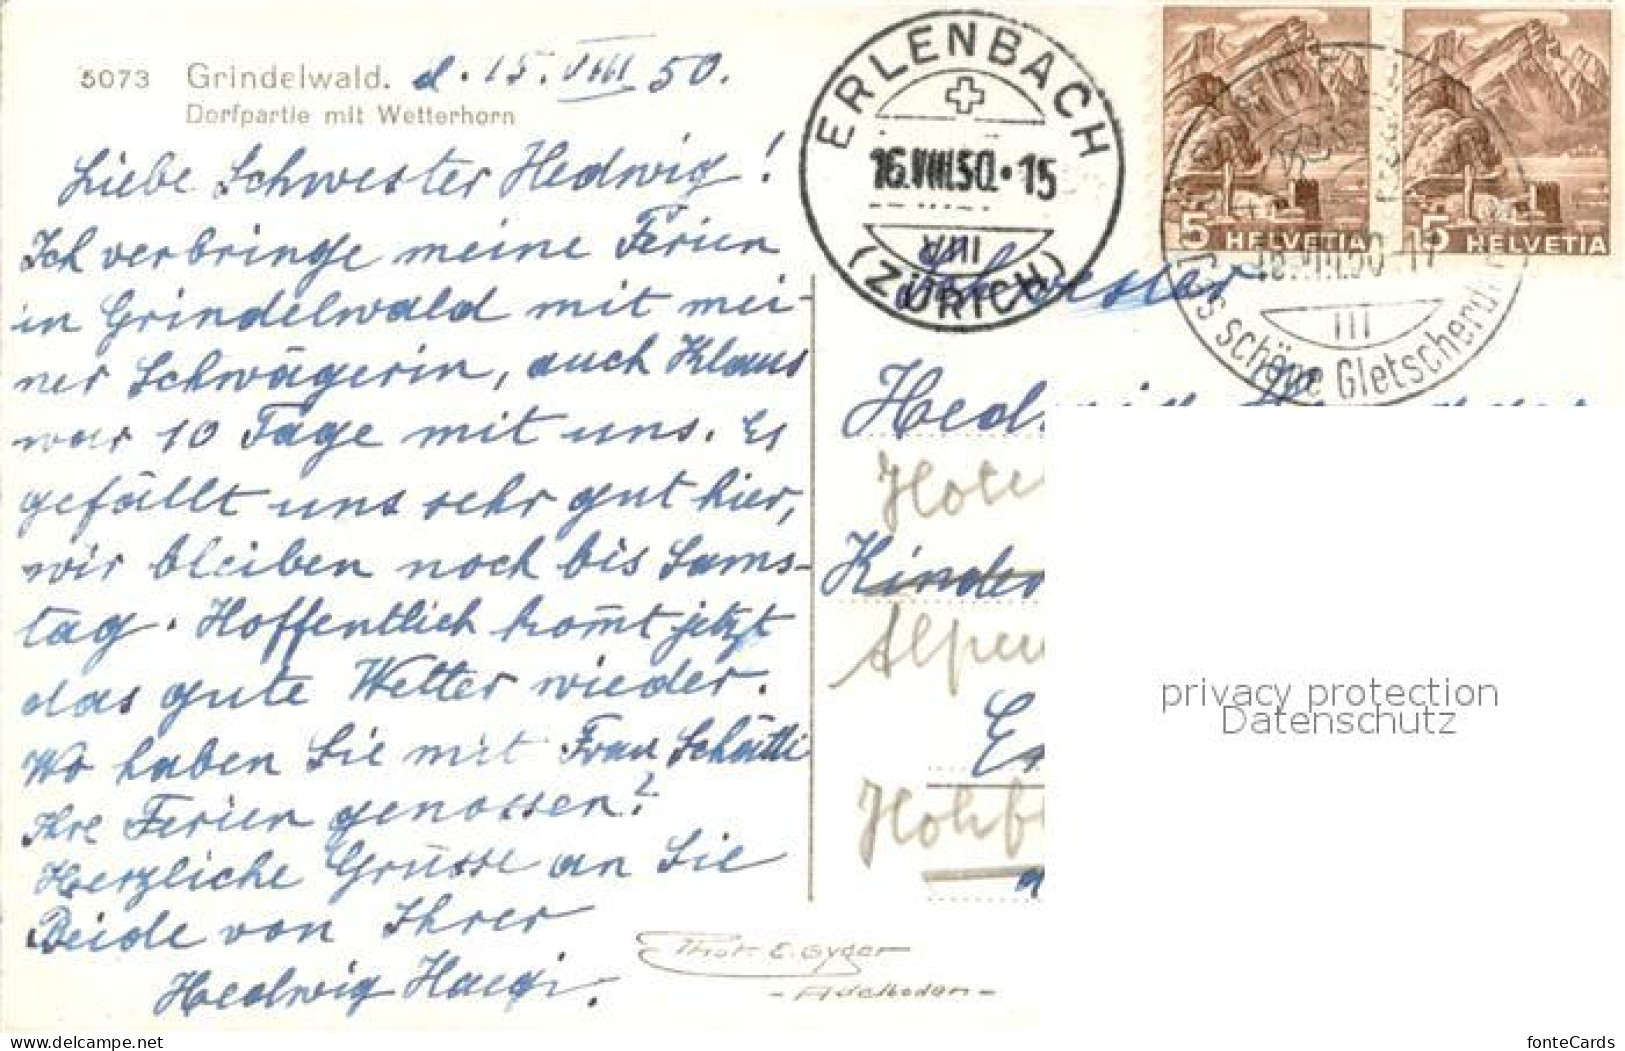 5073 Grindelwald. d. 15. VIII 50.
Dorfpartie mit Wetterhorn
Liebe Schwester Hedwig!
Ich verbringe meine Ferien
in Grindelwald mit mei-
ner Schwägerin, auch Klaus
war 10 Tage mit uns. Es
gefällt uns sehr gut hier,
wir bleiben noch bis Sams-
tag. Hoffentlich kom̄t jetzt
das gute Wetter wieder.
Wo haben Sie mit Frau Schätti
Ihre Ferien genossen?
Herzliche Grüsse an Sie
Beide von Ihrer
Hedwig Haegi.
Phot. E. Gyger
- Adelboden -
ERLENBACH
16.VIII.50.15
VIII
(ZÜRICH)
5 HELVETIA
5 HELVETIA
III
schöne Gletscherd
Schwester
Hed
Hote
Kinder
Alpen
Hohf
privacy protection
Datenschutz
www.delcampe.net
fonteCards